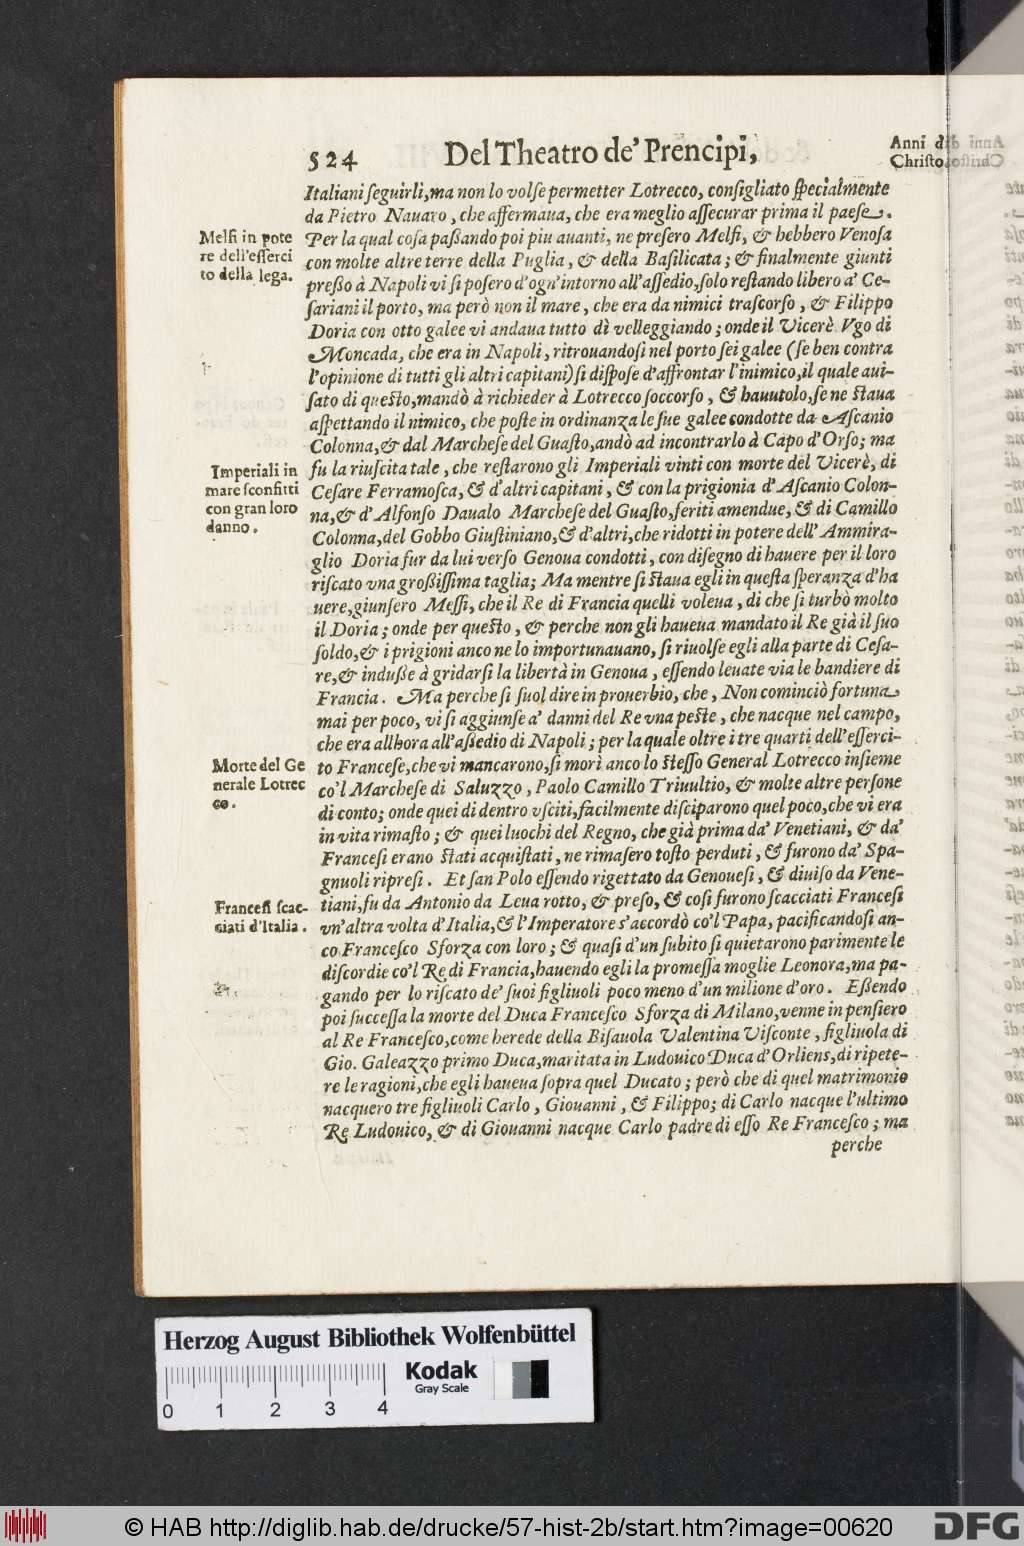 524 Del Theatro de' Prencipi,
Anni di
Christo.
Italiani seguirli, ma non lo volse permetter Lotrecco, consigliato specialmente
da Pietro Nauaro, che affermaua, che era meglio assecurar prima il paese.
Melfi in pote
re dell'esserci
to della lega.
Per la qual cosa paßando poi piu auanti, ne presero Melfi, & hebbero Venosa
con molte altre terre della Puglia, & della Basilicata; & finalmente giunti
preßo à Napoli vi si posero d'ogn'intorno all'assedio, solo restando libero a' Ce-
sariani il porto, ma però non il mare, che era da nimici trascorso, & Filippo
Doria con otto galee vi andaua tutto dì velleggiando; onde il Vicerè Vgo di
Moncada, che era in Napoli, ritrouandosi nel porto sei galee (se ben contra
l'opinione di tutti gli altri capitani) si dispose d'affrontar l'inimico, il quale aui-
sato di questo, mandò à richieder à Lotrecco soccorso, & hauutolo, se ne staua
aspettando il nimico, che poste in ordinanza le sue galee condotte da Ascanio
Colonna, & dal Marchese del Guasto, andò ad incontrarlo à Capo d'Orso; ma
Imperiali in
mare sconfitti
con gran loro
danno.
fu la riuscita tale, che restarono gli Imperiali vinti con morte del Vicerè, di
Cesare Ferramosca, & d'altri capitani, & con la prigionia d'Ascanio Colon-
na, & d'Alfonso Daualo Marchese del Guasto, feriti amendue, & di Camillo
Colonna, del Gobbo Giustiniano, & d'altri, che ridotti in potere dell' Ammira-
glio Doria fur da lui verso Genoua condotti, con disegno di hauere per il loro
riscato vna großissima taglia; Ma mentre si staua egli in questa speranza d'ha
uere, giunsero Messi, che il Re di Francia quelli voleua, di che si turbò molto
il Doria; onde per questo, & perche non gli haueua mandato il Re già il suo
soldo, & i prigioni anco ne lo importunauano, si riuolse egli alla parte di Cesa-
re, & induße à gridarsi la libertà in Genoua, essendo leuate via le bandiere di
Francia. Ma perche si suol dire in prouerbio, che, Non cominciò fortuna
mai per poco, vi si aggiunse a' danni del Re vna peste, che nacque nel campo,
che era allhora all'aßedio di Napoli; per la quale oltre i tre quarti dell'esserci-
Morte del Ge
nerale Lotrec
co.
to Francese, che vi mancarono, si morì anco lo stesso General Lotrecco insieme
co'l Marchese di Saluzzo, Paolo Camillo Triuultio, & molte altre persone
di conto; onde quei di dentro vsciti, facilmente disciparono quel poco, che vi era
in vita rimasto; & quei luochi del Regno, che già prima da' Venetiani, & da'
Francesi erano stati acquistati, ne rimasero tosto perduti, & furono da' Spa-
gnuoli ripresi. Et san Polo essendo rigettato da Genouesi, & diuiso da Vene-
Francesi scac-
ciati d'Italia.
tiani, fu da Antonio da Leua rotto, & preso, & così furono scacciati Francesi
vn'altra volta d'Italia, & l'Imperatore s'accordò co'l Papa, pacificandosi an-
co Francesco Sforza con loro; & quasi d'un subito si quietarono parimente le
discordie co'l Re di Francia, hauendo egli la promessa moglie Leonora, ma pa-
gando per lo riscato de' suoi figliuoli poco meno d'un milione d'oro. Eßendo
poi successa la morte del Duca Francesco Sforza di Milano, venne in pensiero
al Re Francesco, come herede della Bisauola Valentina Visconte, figliuola di
Gio. Galeazzo primo Duca, maritata in Ludouico Duca d'Orliens, di ripete-
re le ragioni, che egli haueua sopra quel Ducato; però che di quel matrimonio
nacquero tre figliuoli Carlo, Giouanni, & Filippo; di Carlo nacque l'ultimo
Re Ludouico, & di Giouanni nacque Carlo padre di esso Re Francesco; ma
perche
Herzog August Bibliothek Wolfenbüttel
Kodak
Gray Scale
0 1 2 3 4
© HAB http://diglib.hab.de/drucke/57-hist-2b/start.htm?image=00620
DFG